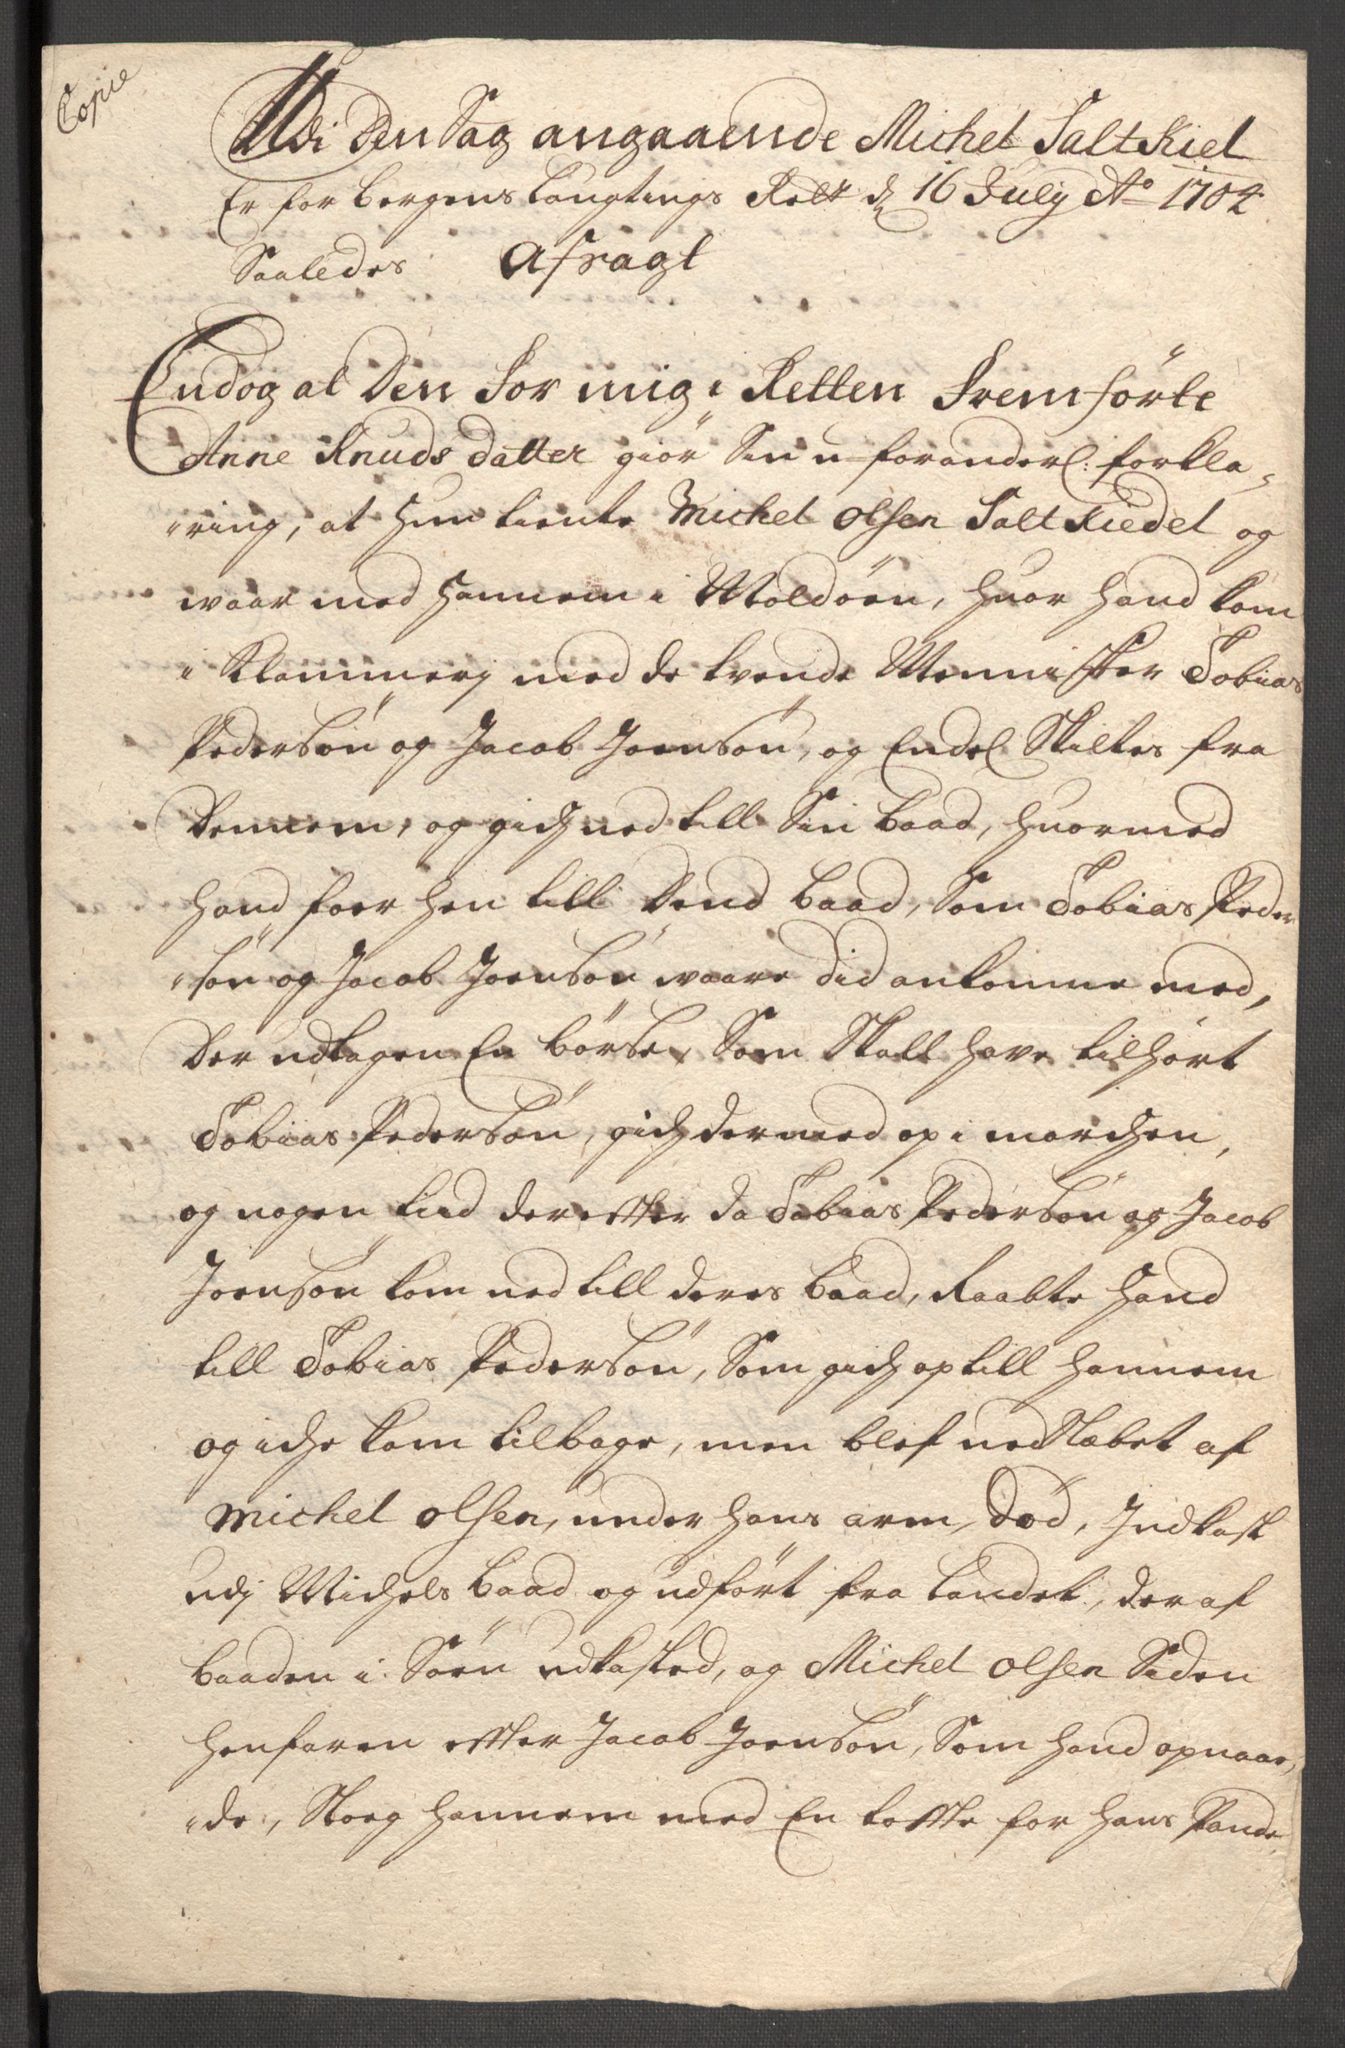 Copie
Udi den Sag angaaende Michel Saltkiel
Er for Bergens Laugtings Rett d. 16 July Ao 1704
Saaledes Afsagt
Endog at den for mig i Retten fremförte
Anne Knuds datter giör sin u-foranderl: forkla-
ring, at hun tiente Michel Olsen Saltkiedel og
waar med hannem i Moldöen, huor hand kom
i Klammerj med de tvende Mennisker Tobias
Pedersön og Jacob Joensön, og Endel skiltes fra
dennem, og gich ned till sin baad, huormed
hand foer hen till dend baad, som Tobias Peder
sön og Jacob Joensön waare did ankomne med,
der udtagen En börse, som skall have tilhört
Tobias Pedersön, gich dermed op i marchen,
og nogen tiid derefter da Tobias Pedersön og Jacob
Joensön kom ned till deres baad, Raabte hand
till Tobias Pedersön, som gich op till hannem
og iche kom tilbage, men blef nedslæbet af
Michel Olsen, under hans arm, död, Indkast
udj Michels baad og udfört fra landet, der af
baaden i Söen udkasted, og Michel Olsen siden
henfaren efter Jacob Joensön, som hand opnaae,
de, Sloeg hannem med En tofte for hans Pande,